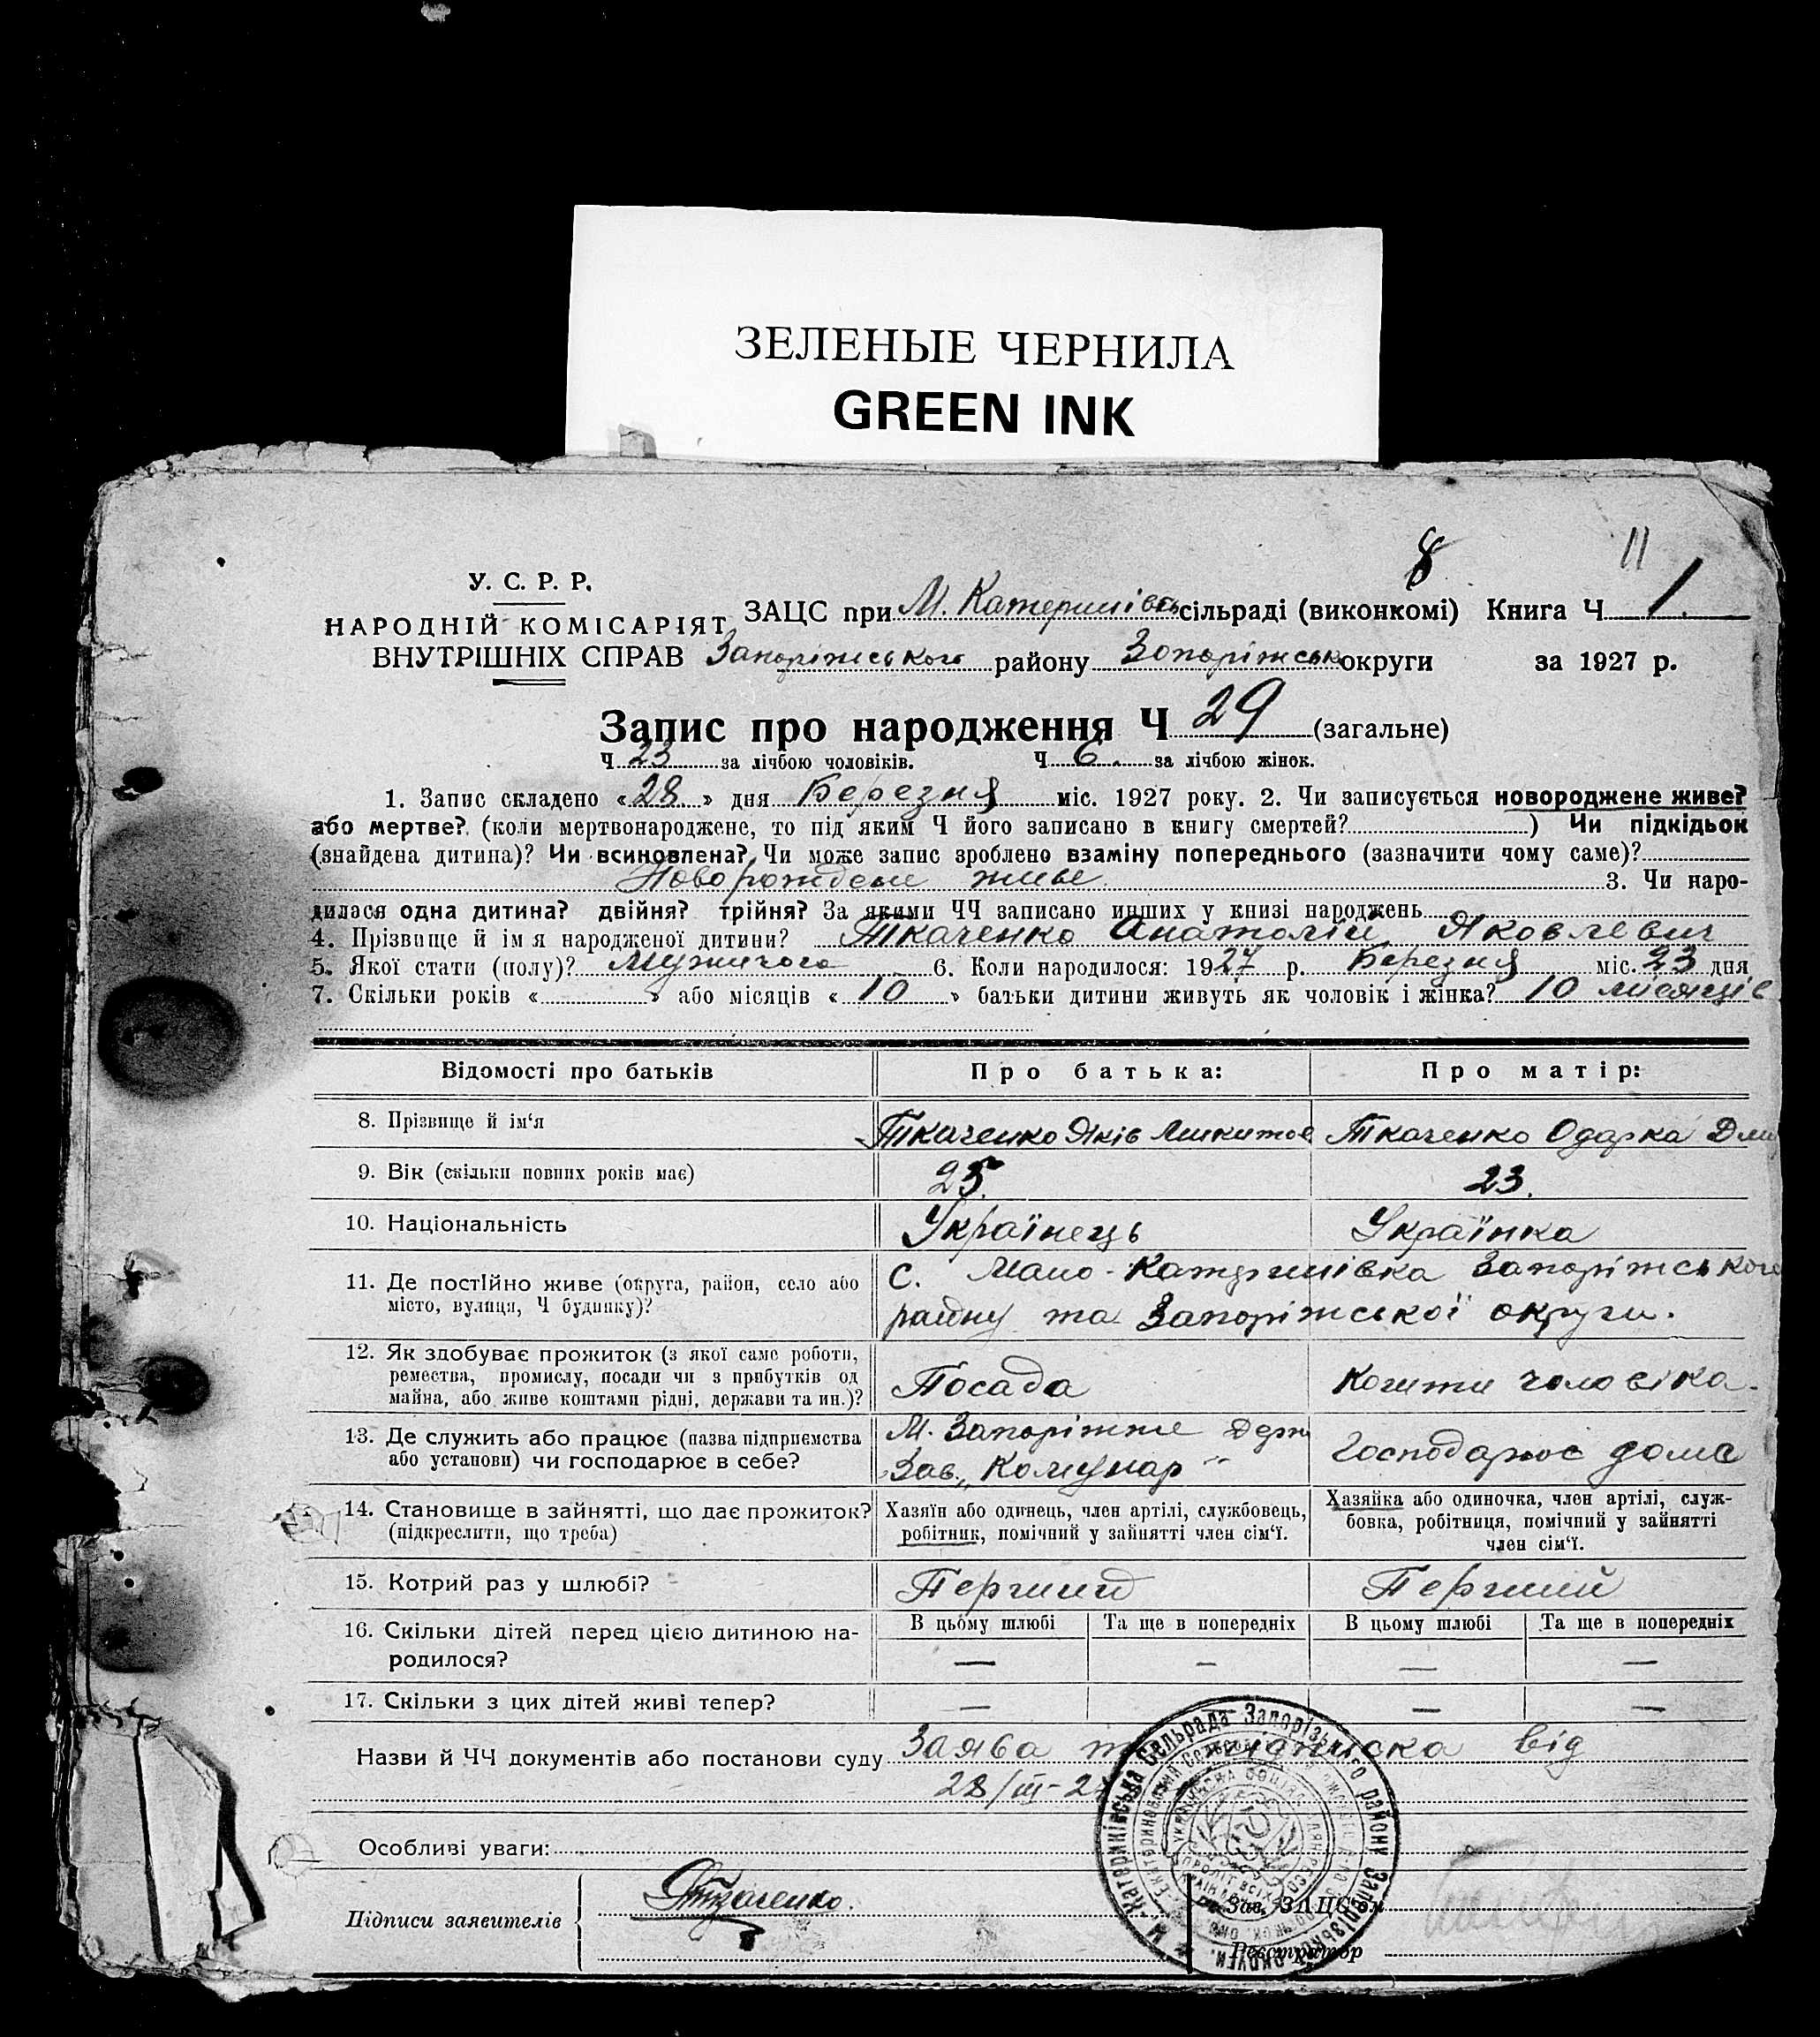 ЗЕЛЕНЫЕ ЧЕРНИЛА
GREEN INK
8 11
У. С. Р. Р.
НАРОДНІЙ КОМІСАРІЯТ
ВНУТРІШНІХ СПРАВ
ЗАЦС при М. Катеринівс сільраді (виконкомі) Книга Ч 1.
Запоріжського району Запоріжськ округи за 1927 р.
Запис про народження Ч 29 (загальне)
Ч 23 за лічбою чоловіків. Ч 6. за лічбою жінок.
1. Запис складено «28» дня Березня міс. 1927 року. 2. Чи записується новороджене живе?
або мертве? (коли мертвонароджене, то під яким Ч його записано в книгу смертей? ) Чи підкідьок
(знайдена дитина)? Чи всиновлена? Чи може запис зроблено взаміну попереднього (зазначити чому саме)?
Новорождене живе 3. Чи наро-
дилася одна дитина? двійня? трійня? За якими ЧЧ записано инших у книзі народжень
4. Прізвище й імя народженої дитини? Ткаченко Анатолій Яковлевич
5. Якої стати (полу)? Мужичого 6. Коли народилося: 1927 р. Березня міс. 23 дня
7. Скільки років « » або місяців «10» батьки дитини живуть як чоловік і жінка? 10 місяців
Відомості про батьків Про батька: Про матір:
8. Прізвище й ім‘я Ткаченко Яків Микитов Ткаченко Одарка Дми
9. Вік (скільки повних років має) 25. 23.
10. Національність Українець Українка
11. Де постІйно живе (округа, район, село або
місто, вулиця, Ч будинку)?
с. Мало-Катеринівка Запоріжського
району та Запоріжської округи.
12. Як здобуває прожиток (з якої саме роботи,
ремества, промислу, посади чи з прибутків од
майна, або живе коштами рідні, держави та ин.)?
Посада Кошти чоловіка.
13. Де служить або працює (назва підприємства
або установи) чи господарює в себе?
М. Запоріжже Держ
Зав. „Комунар“
Господарює дома
14. Становище в зайнятті, що дає прожиток?
(підкреслити, що треба)
Хазяїн або одинець, член артілі, службовець,
робітник, помічний у зайнятті член сім‘ї.
Хазяйка або одиночка, член артілі, служ-
бовка, робітниця, помічний у зайнятті
член сім‘ї.
15. Котрий раз у шлюбі? Перший Перший
16. Скільки дітей перед цією дитиною на-
родилося?
В цьому шлюбі Та ще в попередніх В цьому шлюбі Та ще в попередніх
— — — —
17. Скільки з цих дітей живі тепер? — — —
Назви й ЧЧ документів або постанови суду Заява та підписка від
28/III-27
Особливі уваги:
Підписи заявителів Ткаченко.
Зав. ЗАЦС‘ом
Реєстратор
М. Катериківська Сельрада Запорізького району Запорізької округи